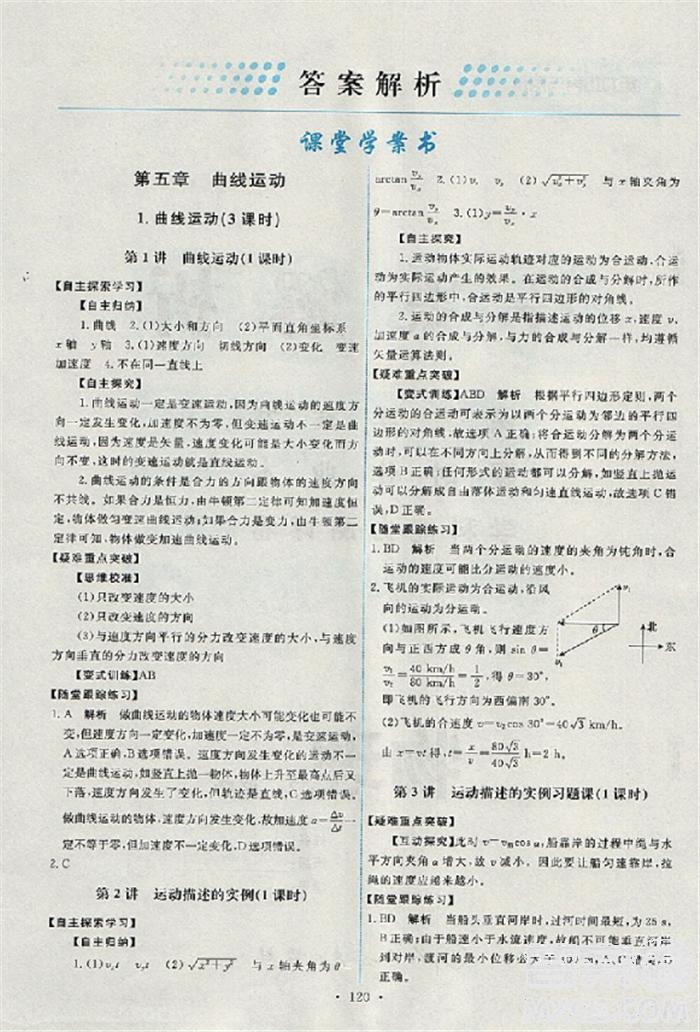 答案解析
课堂学案书
第五章 曲线运动
1.曲线运动(3课时)
第1讲 曲线运动(1课时)
【自主探索学习】
【自主归纳】
1.曲线 2.(1)大小和方向 (2)平面直角坐标系
x轴 y轴 3.(1)速度方向 切线方向 (2)变化 变速
加速度 4.不在同一直线上
【自主探究】
1.曲线运动一定是变速运动,因为曲线运动的速度方
向一定发生变化,加速度不为零,但变速运动不一定是曲
线运动,因为速度是矢量,速度变化可能是大小变化而方
向不变,这时的变速运动就是直线运动。
2.曲线运动的条件是合力的方向跟物体的速度方向
不共线。如果合力是恒力,由牛顿第二定律可知加速度恒
定,物体做匀变速曲线运动;如果合力是变力,由牛顿第二
定律可知,物体做变加速曲线运动。
【疑难重点突破】
【思维校准】
(1)只改变速度的大小
(2)只改变速度的方向
(3)与速度方向平行的分力改变速度的大小,与速度
方向垂直的分力改变速度的方向
【变式训练】AB
【随堂跟踪练习】
1.A 解析 做曲线运动的物体速度大小可能变化也可能不
变,但方向一定变化,加速度一定不为零,是变速运动,
A选项正确,B选项错误。速度方向发生变化的运动不一
定是曲线运动,如竖直上抛一物体,物体上升至最高点后又
下落,速度方向发生了变化,但轨迹是直线,C选项错误。
做曲线运动的物体,速度方向发生变化,故加速度a=Δv/Δt一
定不等于零,但不一定变化,D选项错误。
2.C
第2讲 运动描述的实例(1课时)
【自主探索学习】
【自主归纳】
1.(1)vₓt v_yt (2)√(x²+y²) 与x轴夹角为θ=
arctan v_y/vₓ 2.(1)vₓ v_y (2)√(vₓ²+v_y²) 与x轴夹角为
θ=arctan v_y/vₓ 3.(1)y=v_y/vₓ·x
【自主探究】
1.运动物体实际运动轨迹对应的运动为合运动,合运
动为实际运动产生的效果。在运动的合成与分解时,所作
的平行四边形中,合运动是平行四边形的对角线。
2.运动的合成与分解是指描述运动的位移x,速度v,
加速度a的合成与分解,与力的合成与分解一样,均遵循
矢量运算法则。
【疑难重点突破】
【变式训练】ABD 解析 根据平行四边形定则,两个
分运动的合运动可表示为以两个分运动为邻边的平行四
边形的对角线,故选项A正确;将合运动分解为两个分运
动时,可以在不同方向上分解,从而得到不同的分解方法,
选项B正确;任何形式的运动都可以分解,如竖直上抛运
动可以分解成自由落体运动和匀速直线运动,故选项C错
误,D正确。
【随堂跟踪练习】
1.BD 解析 当两个分运动的速度的夹角为钝角时,合
运动的速度可能比分运动的速度小。
2.飞机的实际运动为合运动,沿风
向的运动为分运动。
(1)如图所示,飞机飞行速度方
向与正西方成θ角,则sin θ=
v₁/v₂=40 km/h/80 km/h=1/2,得θ=30°,
即飞机的飞行方向为西偏南30°。
(2)飞机的合速度v=v₂cos 30°=40√3 km/h
由x=vt得,t=x/v=80√3/40√3 h=2 h。
v₁
θ
北
东
第3讲 运动描述的实例习题课(1课时)
【疑难重点突破】
【互动探究】此时v=v_m cosα,船靠岸的过程中缆与水
平方向夹角α增大,故v减小。因此要让船匀速靠岸,拉
绳的速度应越来越小。
【随堂跟踪练习】
1.BD 解析 当船头垂直河岸时,过河时间最短,为25 s,
B正确;由于船速小于水流速度,故船不可能垂直河岸
到对岸,渡河的最小位移
正确。
120